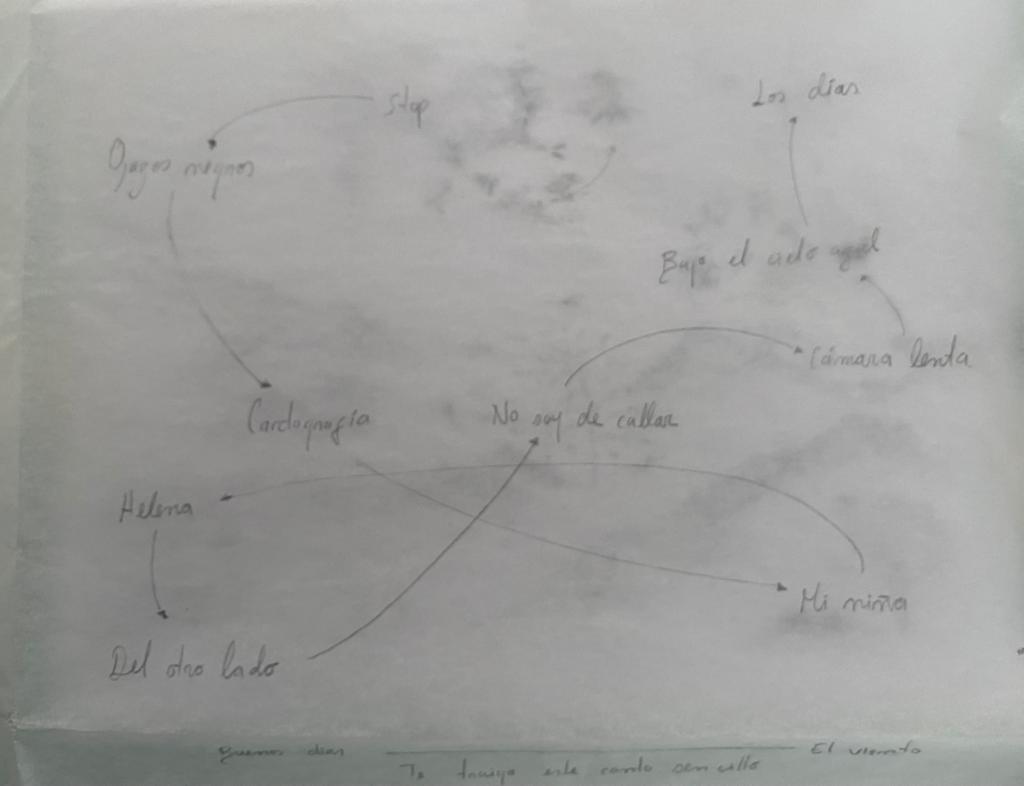 Los días
Stop
Ojazos negros
Bajo el cielo azul
Cámara lenta
Cardiografía
No soy de callar
Helena
Mi niña
Del otro lado
Buenos días
El viento
Te traigo este canto sencillo